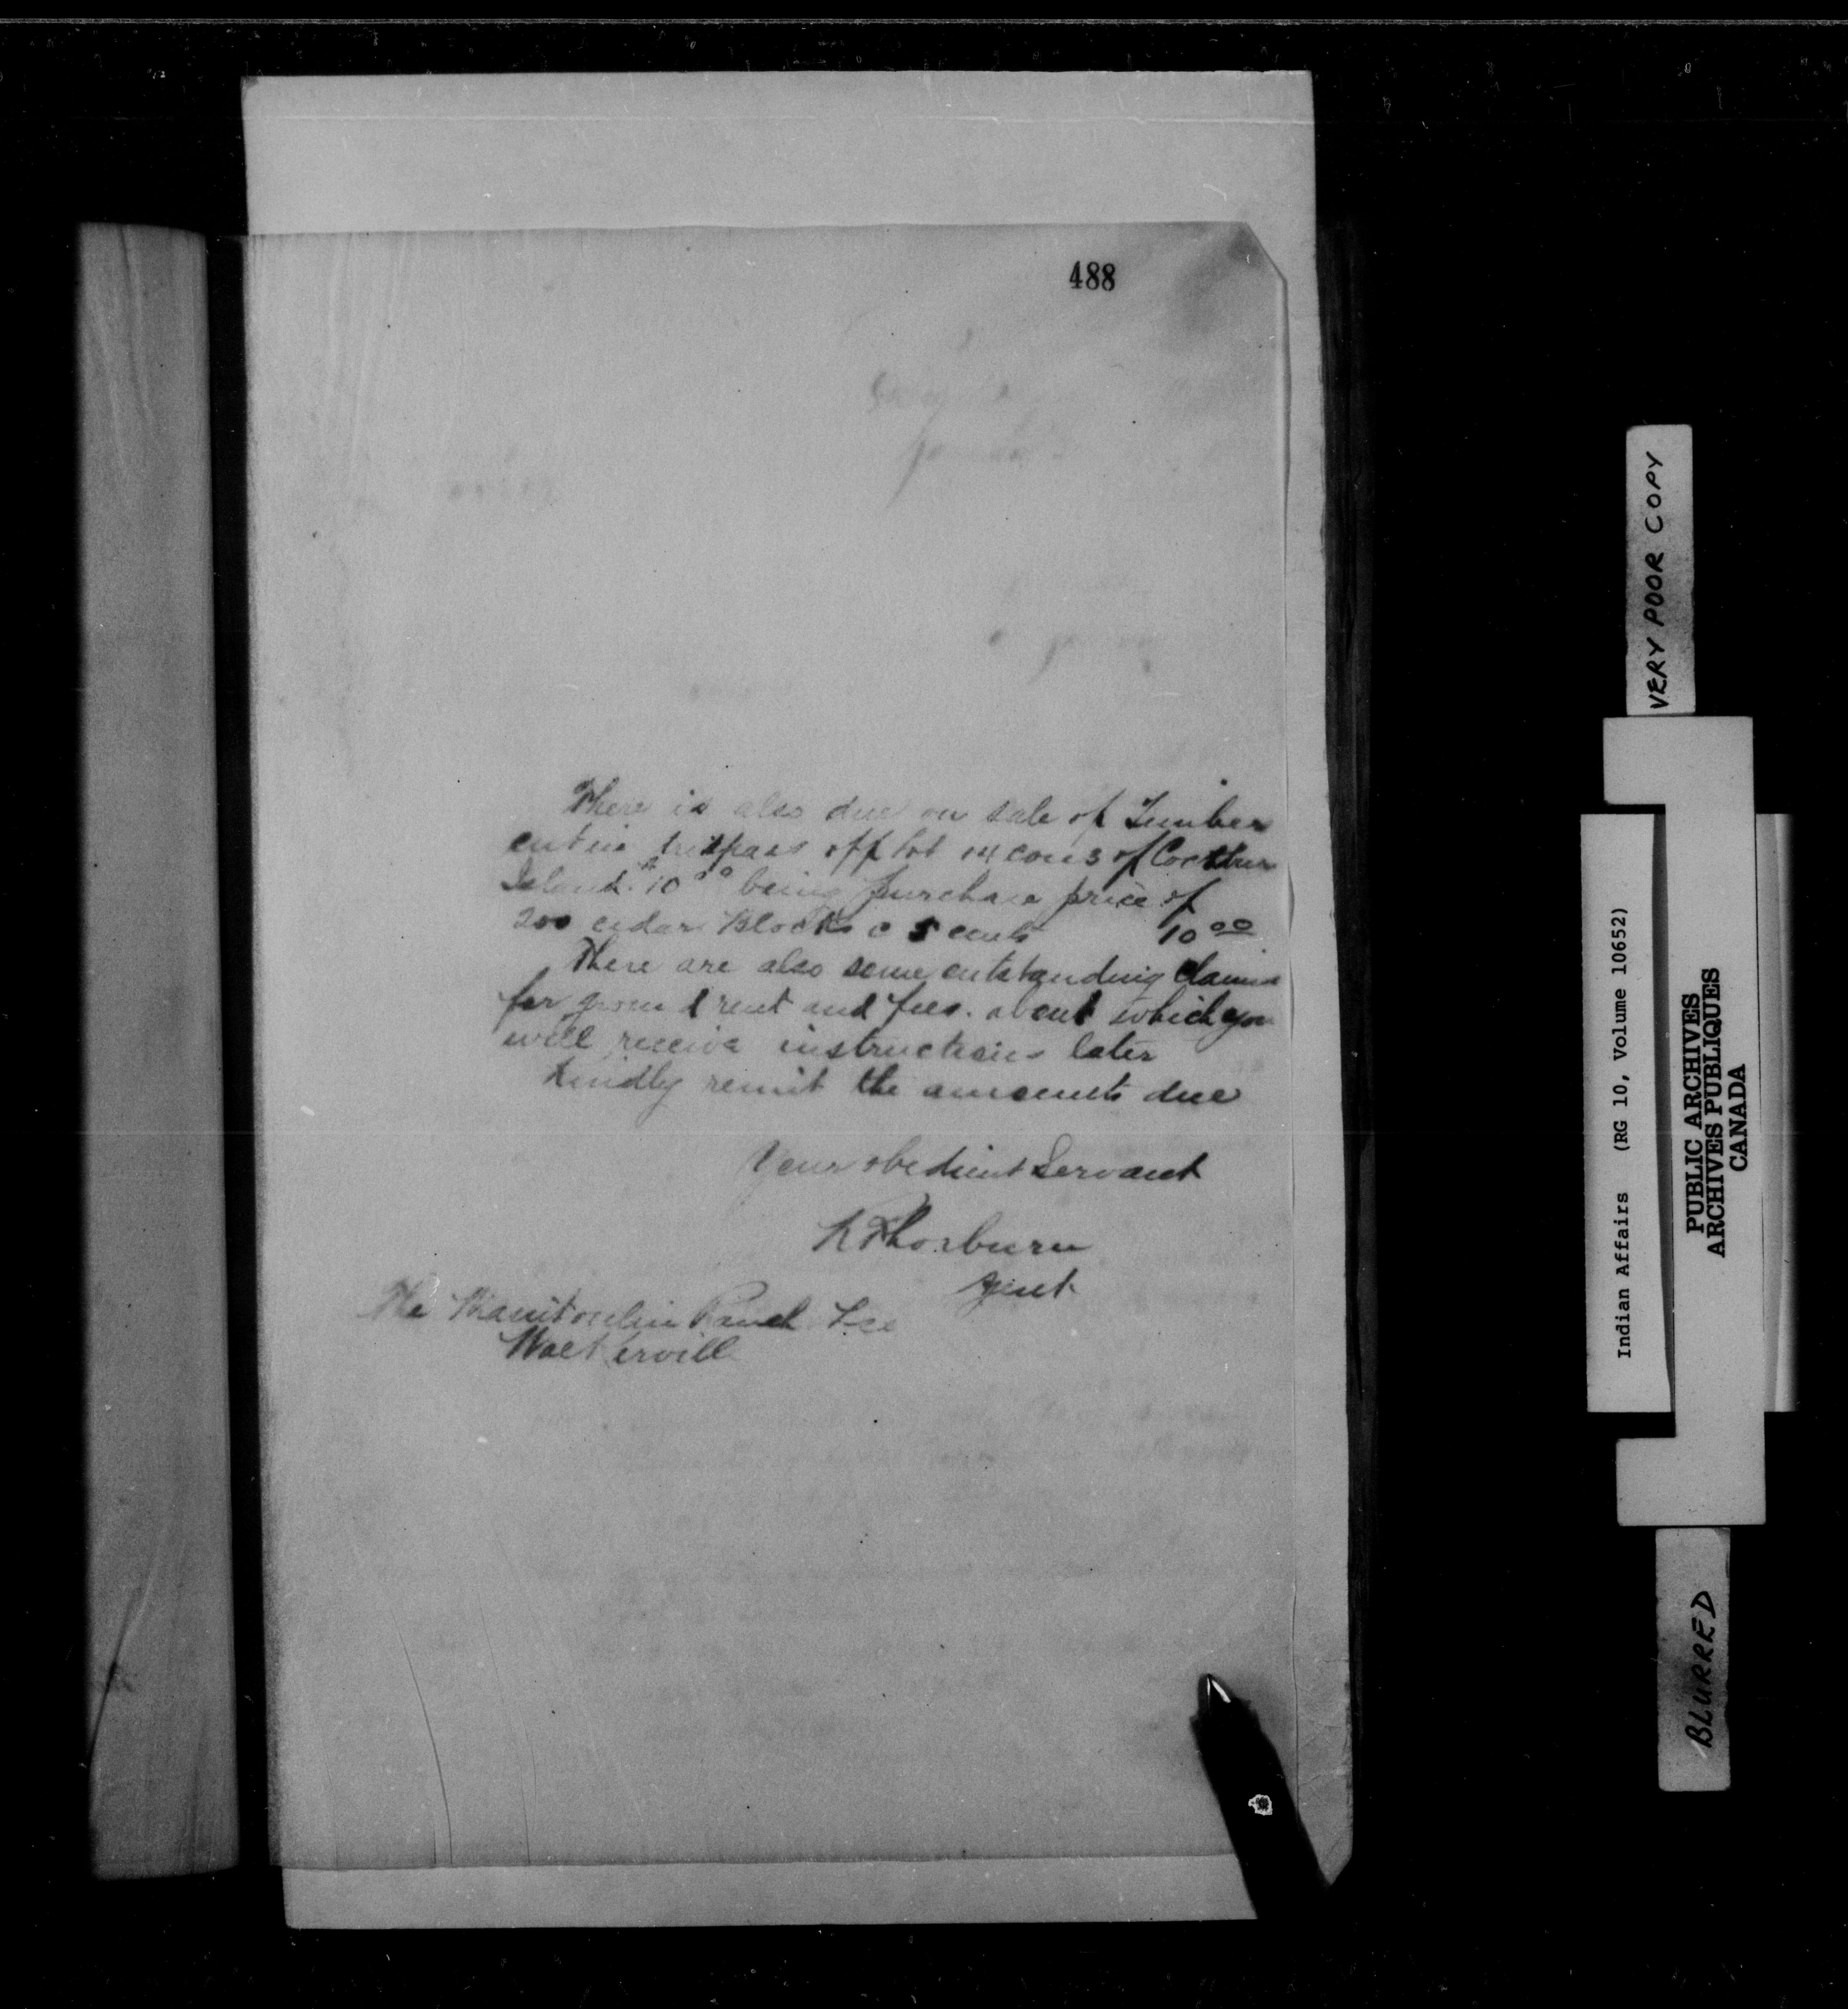 488
There is also due on sale of Timber
cut in trespass off lot 14 con 3 of Cockburn
Island $10.00 being purchase price of
200 cedar Blocks @ 5 cents 10 00
There are also some outstanding claims
for ground rent and fees. about which you
will receive instructions later
Kindly remit the amounts due
Your obedient Servant
Thorburn
Agent
The Manitoulin Ranch
Walkervill
VERY POOR COPY
Indian Affairs (RG 10, Volume 10652)
PUBLIC ARCHIVES
ARCHIVES PUBLIQUES
CANADA
BLURRED